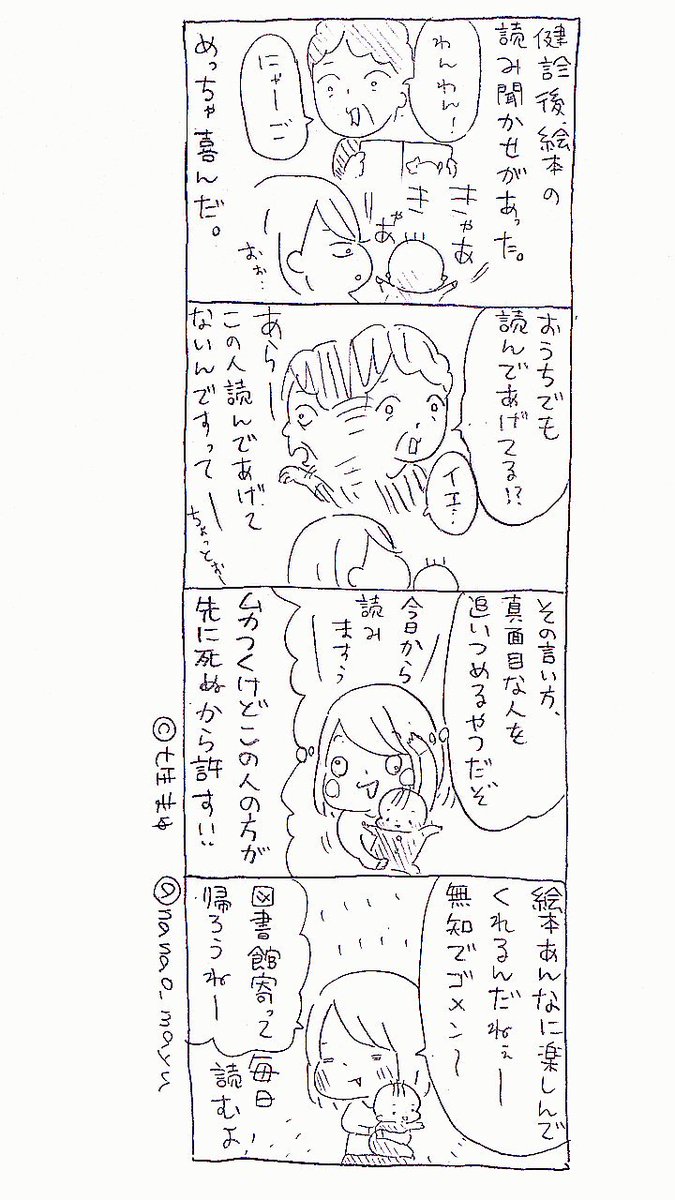 健診後、絵本の
読み聞かせがあった。
わんわん!
にゃーご
きゃあ
きゃあ
めっちゃ喜んだ。
おぉ…
おうちでも
読んであげてる!?
イエ…
あらー
この人読んであげて
ないんですってー
ちょっとぉ~
その言い方、
真面目な人を
追いつめるやつだぞ
今日から
読み
ますぅ
ムカつくけどこの人の方が
先に死ぬから許す!!
絵本あんなに楽しんで
くれるんだねぇー
無知でゴメン~
図書館寄って
帰ろうねー
毎日
読むよ
©七生まゆ
@nanao_mayu